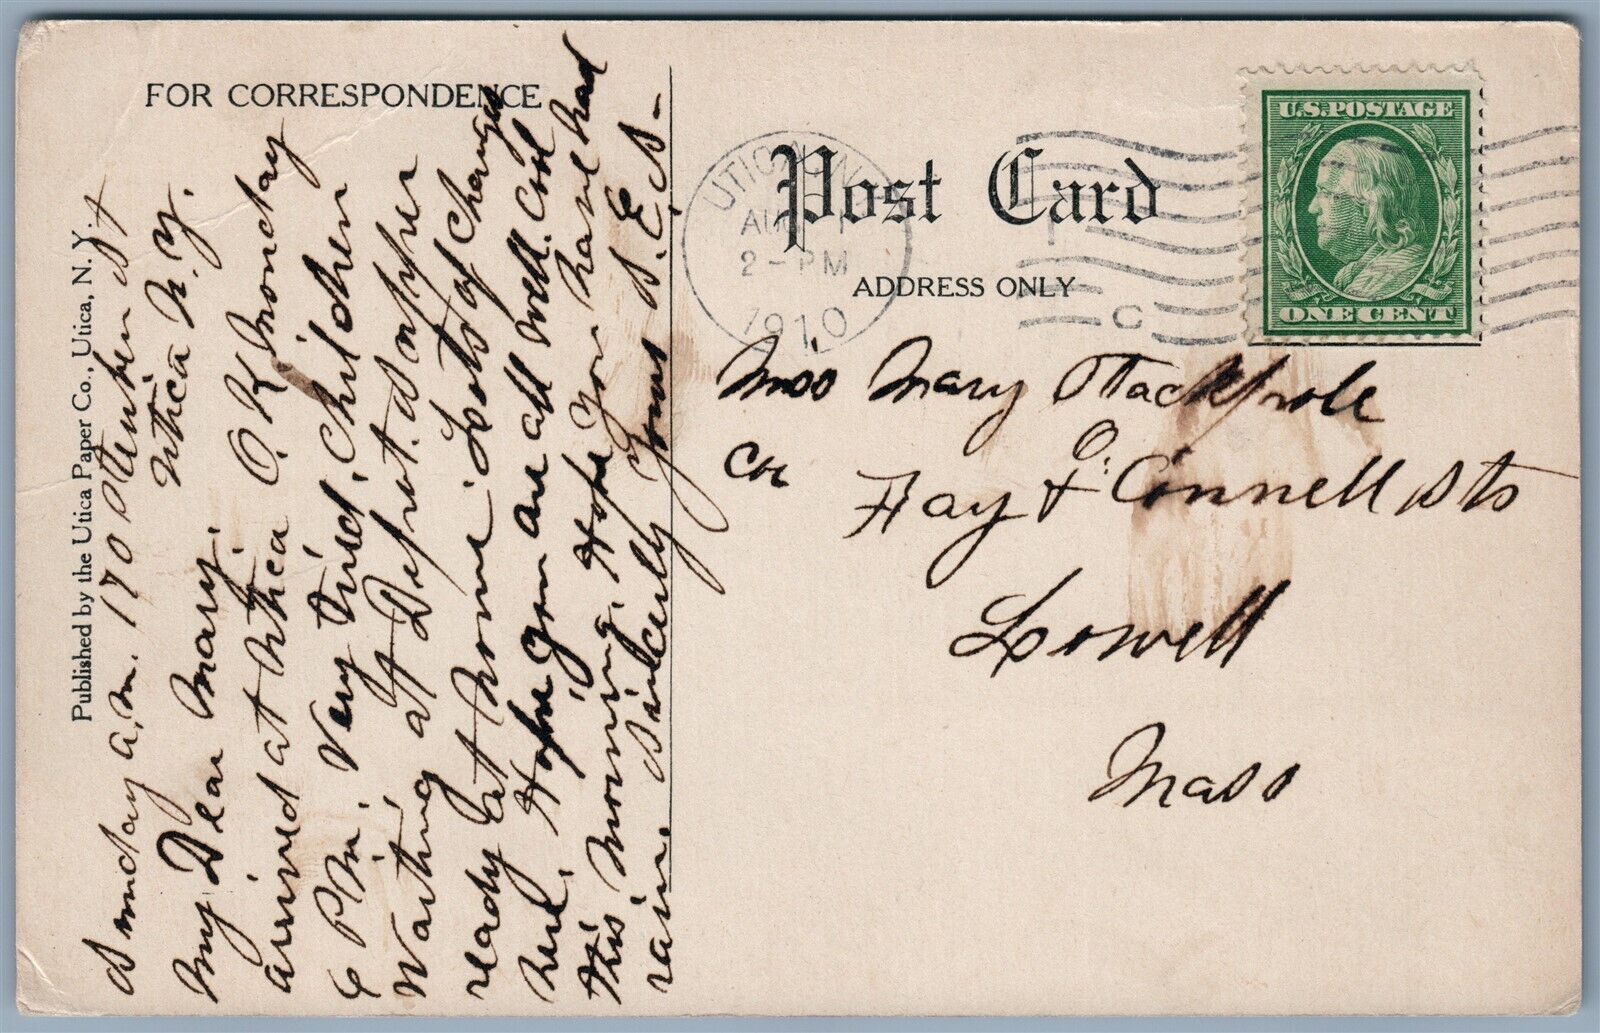 FOR CORRESPONDENCE
Published by the Utica Paper Co., Utica, N. Y.
Sunday a.m. 170 Steuben St
Utica N.Y.
My Dear Mary.
arrived at Utica O.K. Monday
6 P.M. Very tired. Children
Waiting at Depot. Supper
ready at home. Lots of changes
here. Hope you are all well. Cool
this morning. Hope you have had
rain. Sincerely Yours S.E.S.
Post Card
ADDRESS ONLY
UTICA, N.Y.
AUG
2 - PM
1910
C
U.S. POSTAGE
ONE CENT
Miss Mary Stackpole
Cor
Fay & O'Connell Sts
Lowell
Mass